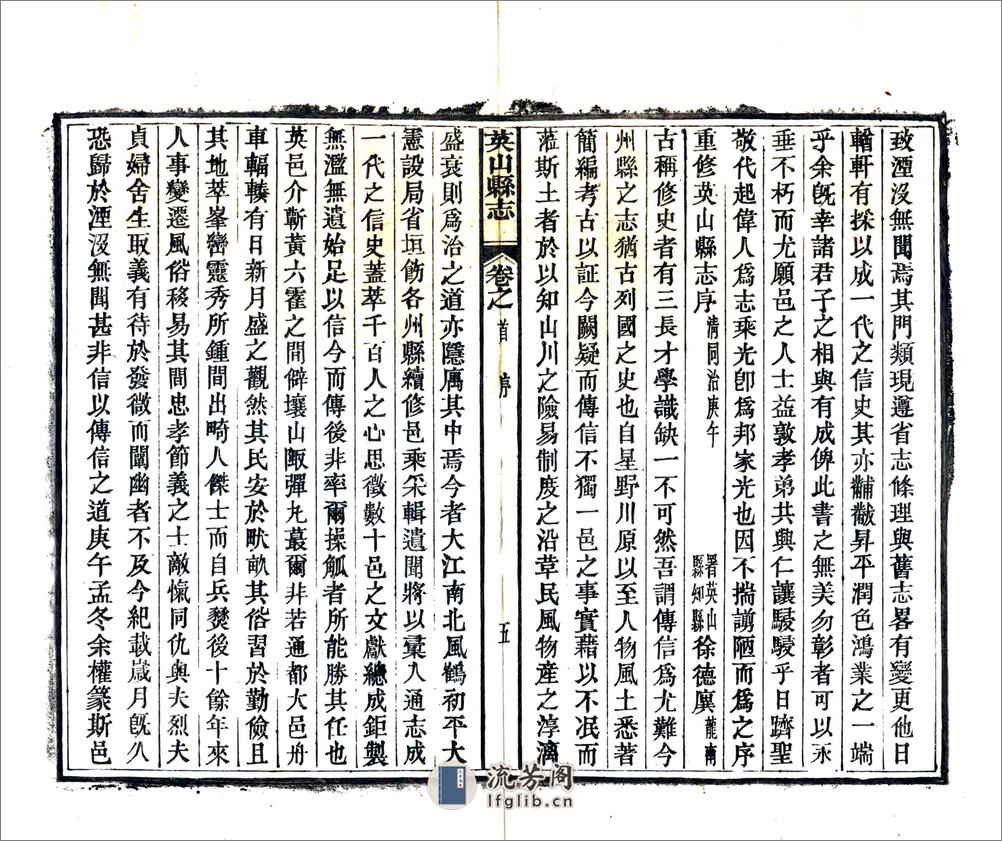 致湮沒無聞焉其門類現遵省志條理與舊志畧有變更他日
輶軒有採以成一代之信史其亦黼黻昇平潤色鴻業之一端
乎余旣幸諸君子之相與有成俾此書之無美勿彰者可以永
垂不朽而尤願邑之人士益敦孝弟共興仁讓駸駸乎日躋聖
敬代起偉人爲志乘光卽爲邦家光也因不揣譾陋而爲之序
重修英山縣志序 淸同治庚午 署英山縣知縣 徐德廙 龍南
古稱修史者有三長才學識缺一不可然吾謂傳信爲尤難今
州縣之志猶古列國之史也自星野川原以至人物風土悉著
簡編考古以証今闕疑而傳信不獨一邑之事實藉以不泯而
蒞斯土者於以知山川之險易制度之沿革民風物產之淳漓
英山縣志 卷之首 序 五
盛衰則爲治之道亦隱厲其中焉今者大江南北風鶴初平大
憲設局省垣飭各州縣續修邑乘采輯遺聞將以彙入通志成
一代之信史蓋萃千百人之心思徵數十邑之文獻總成鉅製
無濫無遺始足以信今而傳後非率爾操觚者所能勝其任也
英邑介蘄黃六霍之間僻壤山陬彈丸蕞爾非若通都大邑舟
車輻輳有日新月盛之觀然其民安於畎畝其俗習於勤儉且
其地萃峯巒靈秀所鍾間出畸人傑士而自兵燹後十餘年來
人事變遷風俗移易其間忠孝節義之士敵愾同仇與夫烈夫
貞婦舍生取義有待於發微而闡幽者不及今紀載歲月旣久
恐歸於湮沒無聞甚非信以傳信之道庚午孟冬余權篆斯邑
流芳阁
lfglib.cn